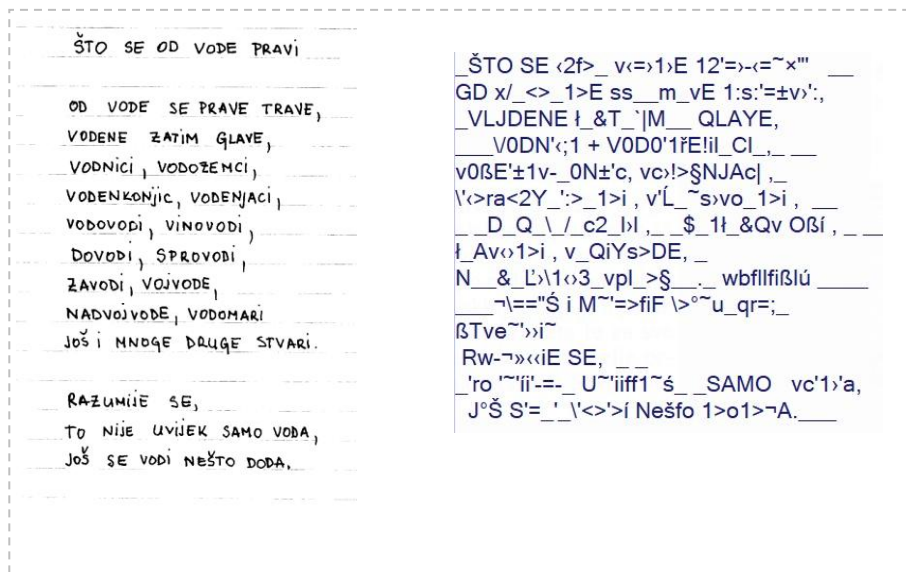 ŠTO SE OD VODE PRAVI
OD VODE SE PRAVE TRAVE,
VODENE ZATIM GLAVE,
VODNICI, VODOZEMCI,
VODENKONJIC, VODENJACI,
VODOVODI, VINOVODI,
DOVODI, SPROVODI,
ZAVODI, VOJVODE,
NADVOJVODE, VODOMARI
JOŠ I MNOGE DRUGE STVARI.
RAZUMIJE SE,
TO NIJE UVIJEK SAMO VODA,
JOŠ SE VODI NEŠTO DODA.
_ŠTO SE ‹2f>_ v‹=›1›E 12'=›-‹=~×"' __
GD x/_<>_1>E ss__m_vE 1:s:'=±v›':,
_VLJDENE ł_&T_`|M__ QLAYE,
___\/0DN'‹;1 + V0D0'1řE!iI_CI_,_ __
v0ßE'±1v-_0N±'c, vc›!>§NJAc| ,_
\'‹>ra<2Y_':>_1>i , v'Ĺ_~s›vo_1>i , __
_ _D_Q_\_/_c2_I›I ,_ _$_1ł_&Qv Oßí , _ __
ł_Av‹›1>i , v_QiYs>DE, _
N__&_Ľ›\1‹›3_vpl_>§__._ wbfIlfißlú ____
___¬\=="Ś i M~'=>fiF \>°~u_qr=;_
ßTve~'››i~
Rw-¬»‹‹iE SE, _ _
_'ro '~'íi'-=-_ U~'iiff1~ś_ _SAMO vc'1›'a,
J°Š S'=_'_\'<>'>í Nešfo 1>o1>¬A.___